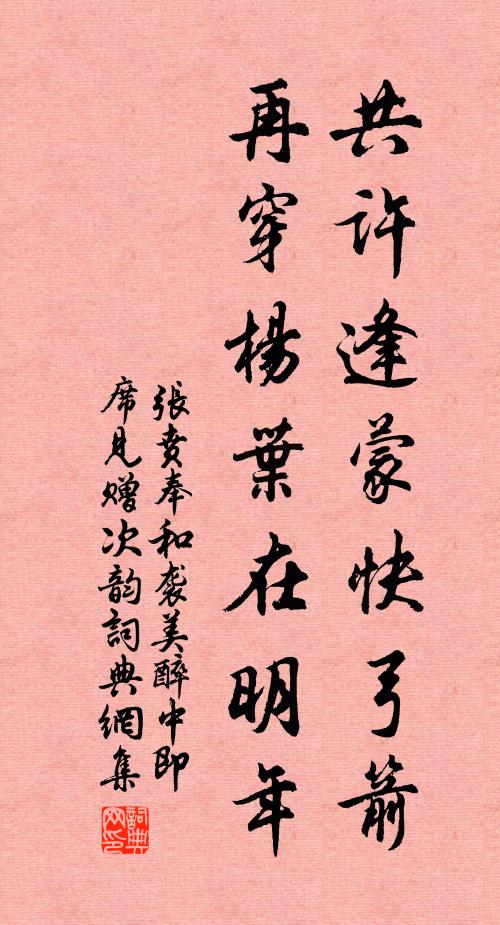 共許逢蒙快弓箭
再穿楊葉在明年
張賁奉和袭美醉中即
席見贈次韵詞典網集
詞典
网印